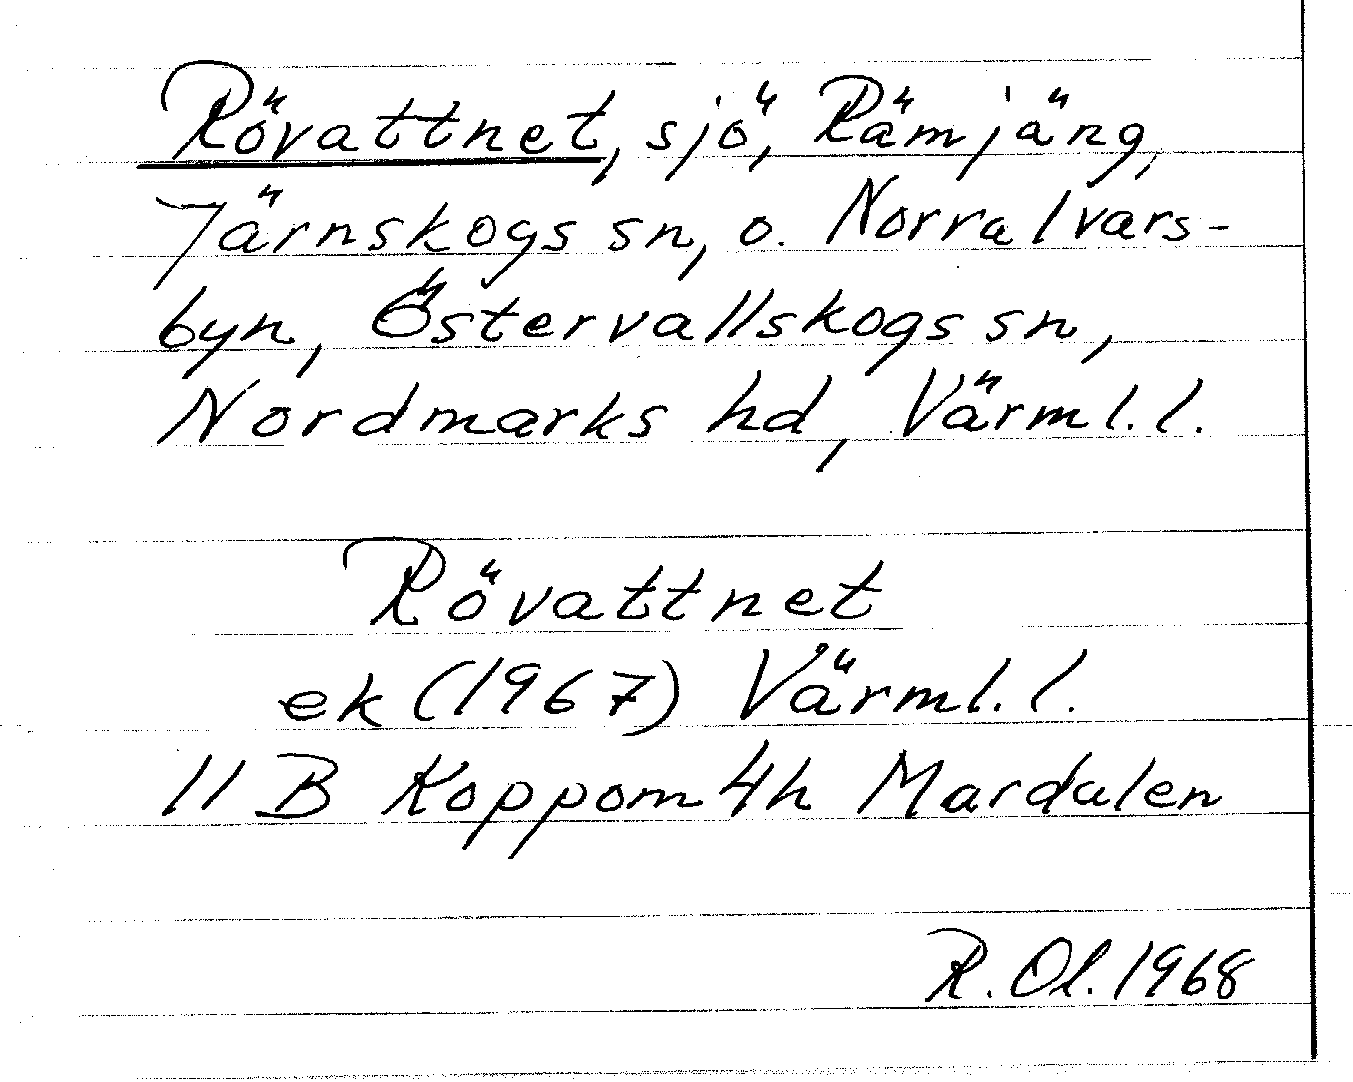 Rövattnet, sjö, Rämjäng,
Järnskogs sn, o. Norra Ivars-
byn, Östervallskogs sn,
Nordmarks hd, Värml. l.
Rövattnet
ek (1967) Värml. l.
11 B Koppom 4h Mardalen
R. Ol. 1968